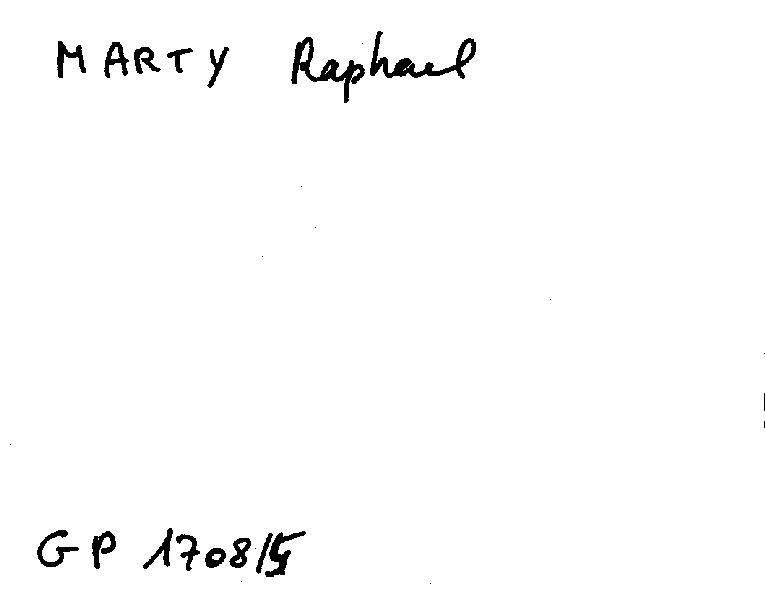 MARTY Raphael
GP 1708/5